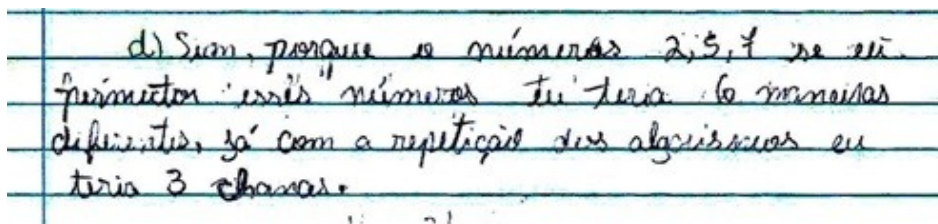 d) Sim, porque o números 2,5,7 se eu
permutar "esses" números eu teria 6 maneiras
diferentes, já com a repetição dos algarismos eu
teria 3 chanas.